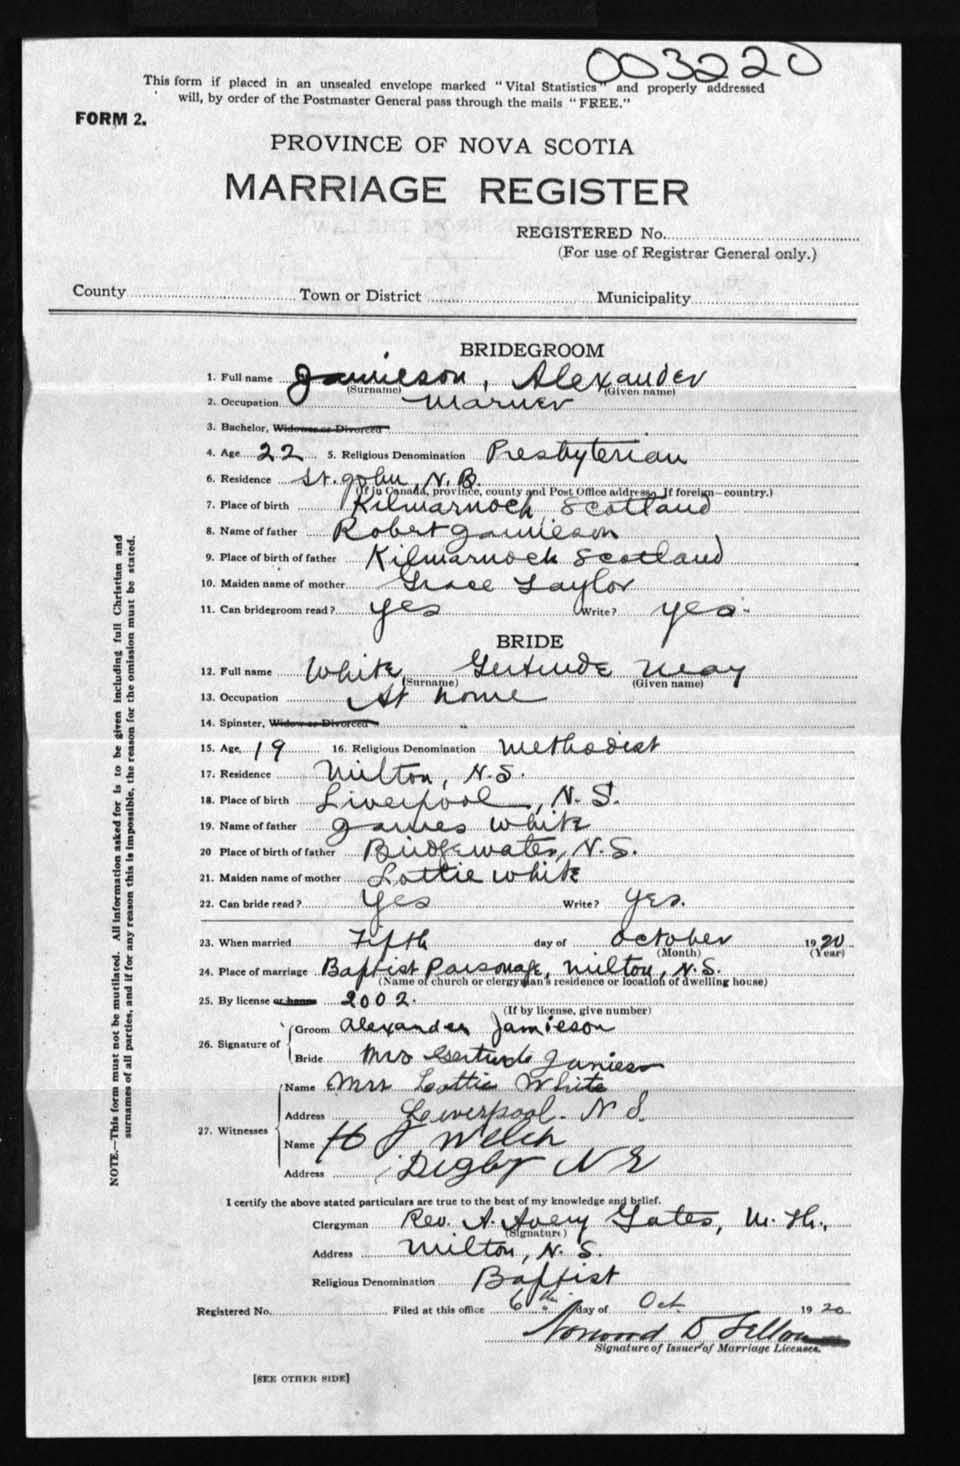 003220
This form if placed in an unsealed envelope marked "Vital Statistics" and properly addressed
will, by order of the Postmaster General pass through the mails "FREE."
FORM 2.
PROVINCE OF NOVA SCOTIA
MARRIAGE REGISTER
REGISTERED No.
(For use of Registrar General only.)
County Town or District Municipality
BRIDEGROOM
1. Full name Jamieson, Alexander
(Surname) (Given name)
2. Occupation Mariner
3. Bachelor, Widower or Divorced
4. Age 22 5. Religious Denomination Presbyterian
6. Residence St. John, N.B.
(If in Canada, province, county and Post Office address. If foreign—country.)
7. Place of birth Kilmarnock Scotland
8. Name of father Robert Jamieson
9. Place of birth of father Kilmarnock Scotland
10. Maiden name of mother Grace Taylor
11. Can bridegroom read? yes Write? yes.
BRIDE
12. Full name White, Gertrude May
(Surname) (Given name)
13. Occupation At home
14. Spinster, Widow or Divorced
15. Age, 19 16. Religious Denomination Methodist
17. Residence Milton, N.S.
18. Place of birth Liverpool, N.S.
19. Name of father James White
20 Place of birth of father Bridgewater, N.S.
21. Maiden name of mother Lottie White
22. Can bride read? Yes Write? Yes.
23. When married Fifth day of October 1920
(Month) (Year)
24. Place of marriage Baptist Parsonage, Milton, N.S.
(Name of church or clergyman's residence or location of dwelling house)
25. By license or banns 2002.
(If by license, give number)
26. Signature of Groom Alexander Jamieson
Bride Mrs Gertrude Jamieson
27. Witnesses Name Mrs Lottie White
Address Liverpool. N S.
Name H J Welch
Address Digby N S
I certify the above stated particulars are true to the best of my knowledge and belief.
Clergyman Rev. A. Avery Gates, M. Th.,
(Signature)
Address Milton, N. S.
Religious Denomination Baptist
Registered No. Filed at this office 6th day of Oct. 1920
Norwood D
Signature of Issuer of Marriage Licenses.
[SEE OTHER SIDE]
NOTE.—This form must not be mutilated. All information asked for is to be given including full Christian and
surnames of all parties, and if for any reason this is impossible, the reason for the omission must be stated.